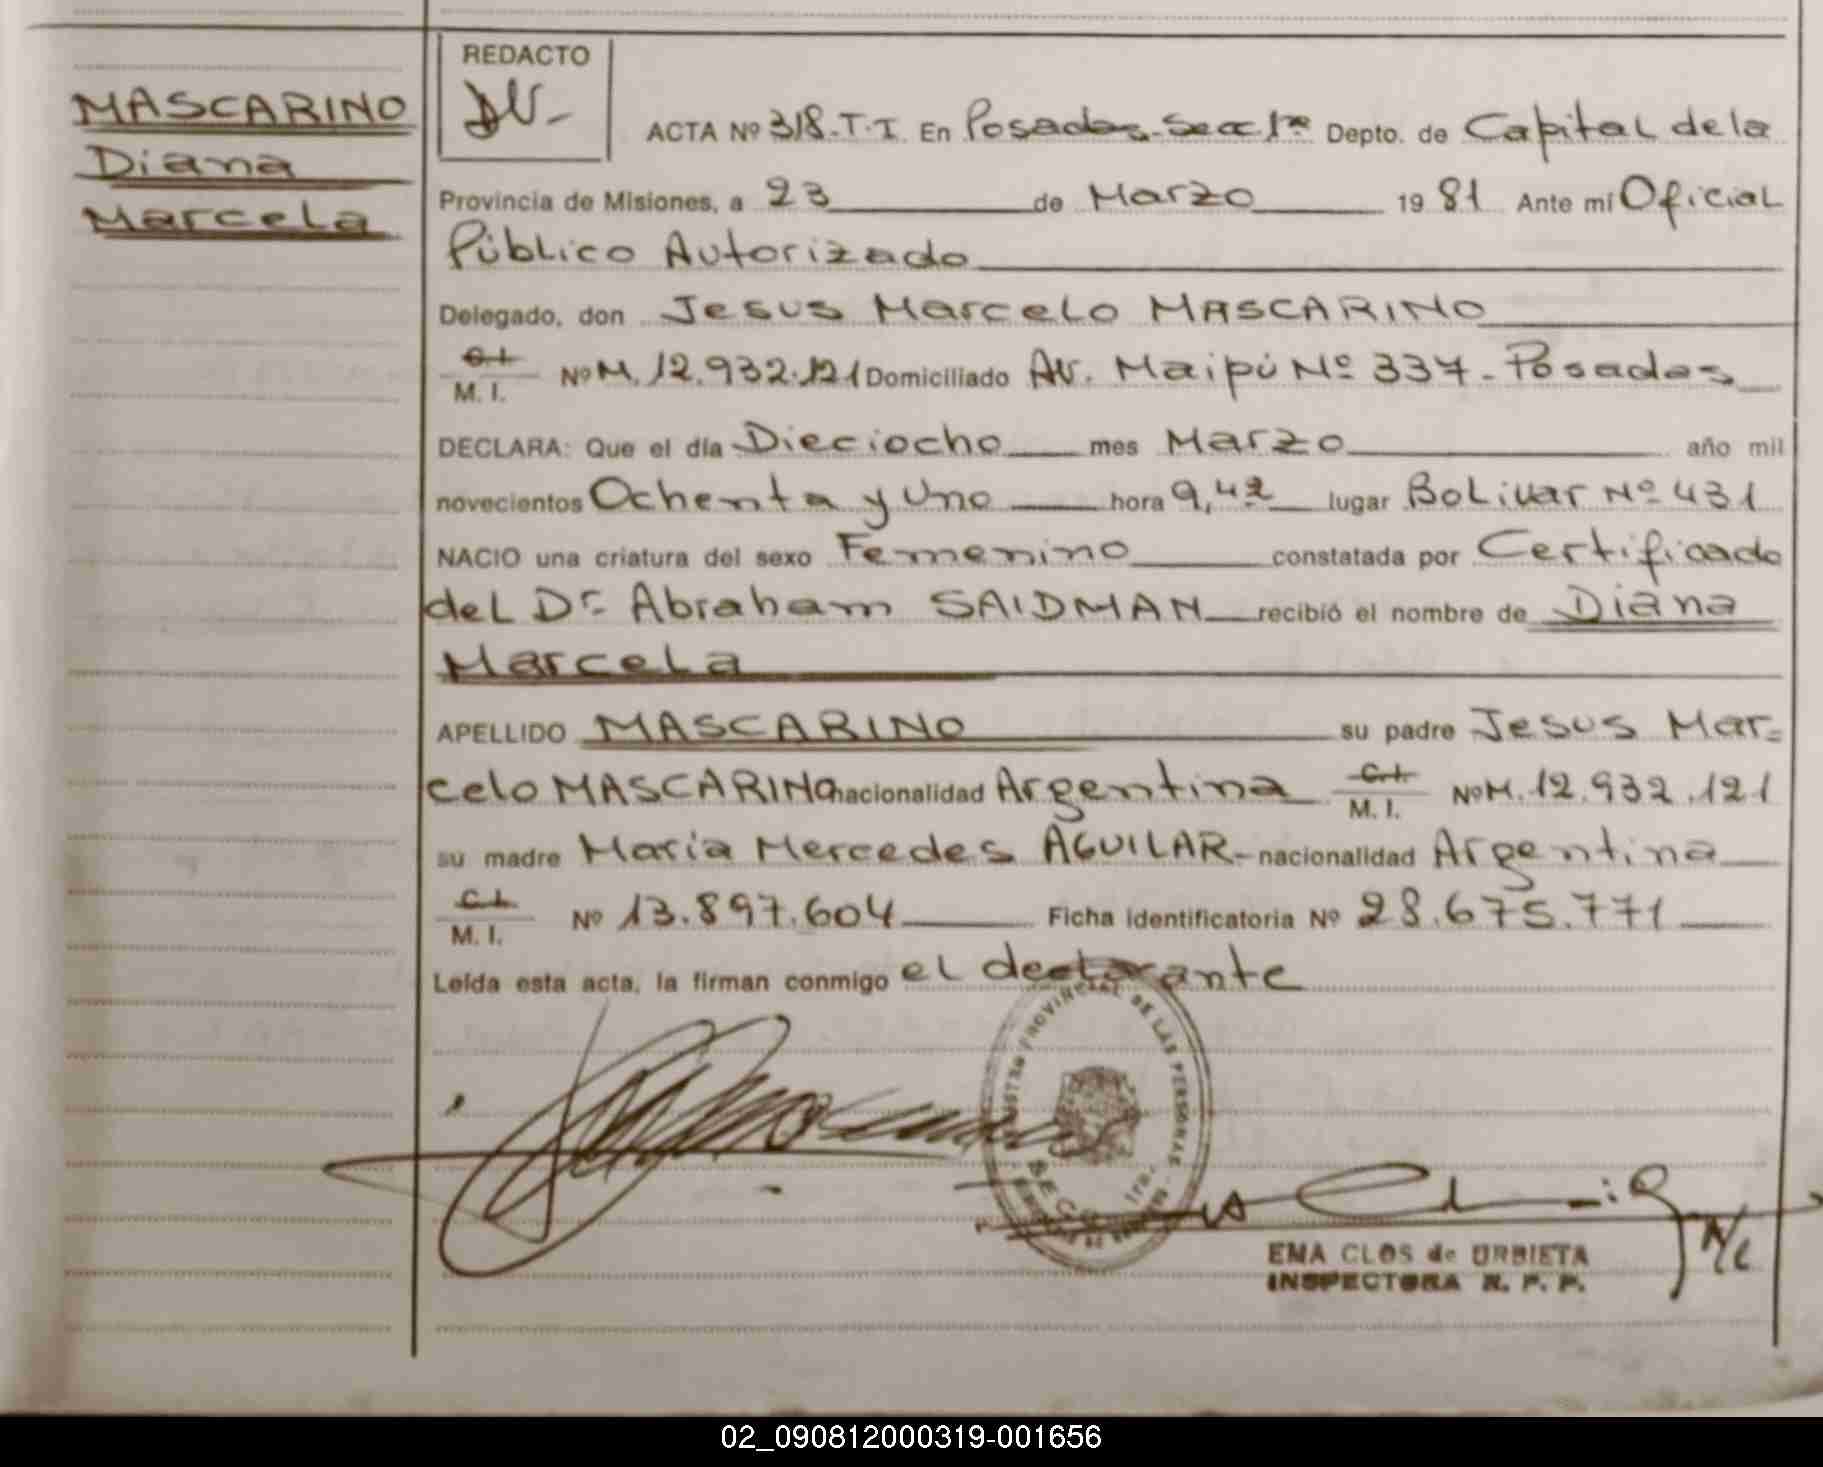 MASCARINO
Diana
Marcela
REDACTO
ACTA Nº 318-T.I. En Posadas-Secc 1ra Depto. de Capital de la
Provincia de Misiones, a 23 de Marzo 1981 Ante mí Oficial
Público Autorizado
Delegado, don Jesus Marcelo MASCARINO
C.I.
M. I. Nº M. 12.932.121 Domiciliado Av. Maipú Nº 337 - Posadas
DECLARA: Que el día Dieciocho mes Marzo año mil
novecientos Ochenta y Uno hora 9,42 lugar Bolivar Nº 431
NACIO una criatura del sexo Femenino constatada por Certificado
del Dr. Abraham SAIDMAN recibió el nombre de Diana
Marcela
APELLIDO MASCARINO su padre Jesus Mar=
celo MASCARINO nacionalidad Argentina C.I.
M. I. Nº M. 12.932.121
su madre Maria Mercedes AGUILAR - nacionalidad Argentina
C.I.
M. I. Nº 13.897.604 Ficha identificatoria Nº 28.675.771
Leída esta acta, la firman conmigo el declarante
PROVINCIAL DE LAS PERSONAS
EMA CLOS de URBIETA
INSPECTORA R. P. P.
02_090812000319-001656